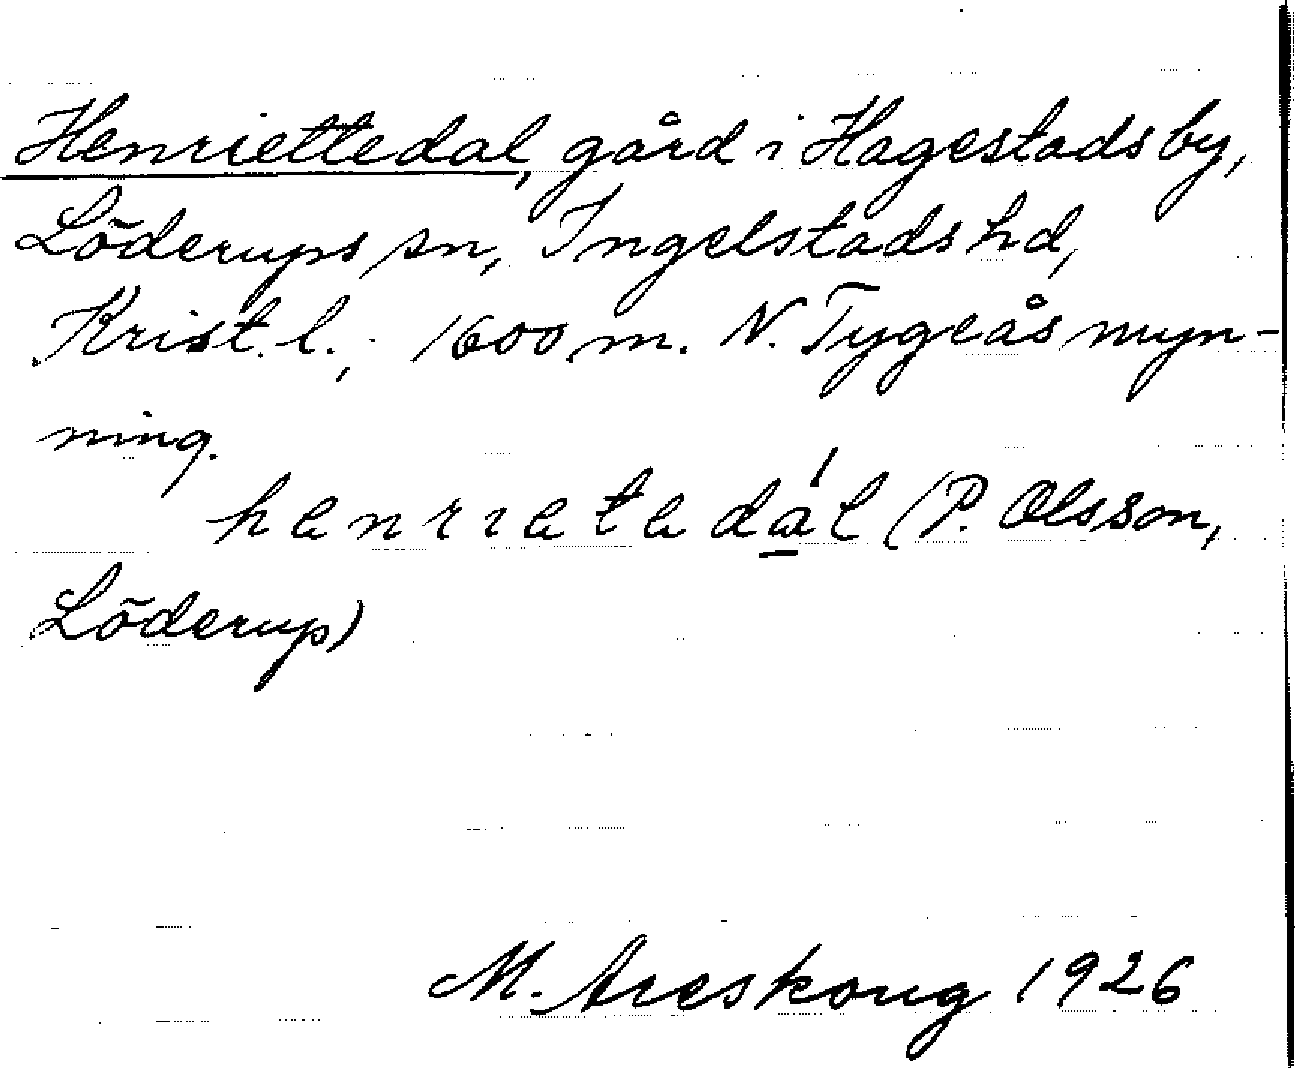 Henriettedal, gård i Hagestads by,
Löderups sn, Ingelstads hd,
Krist. l., 1600 m. N. Tygeås myn-
ning.
henrietedál (P. Olsson,
Löderup)
M. Areskoug 1926